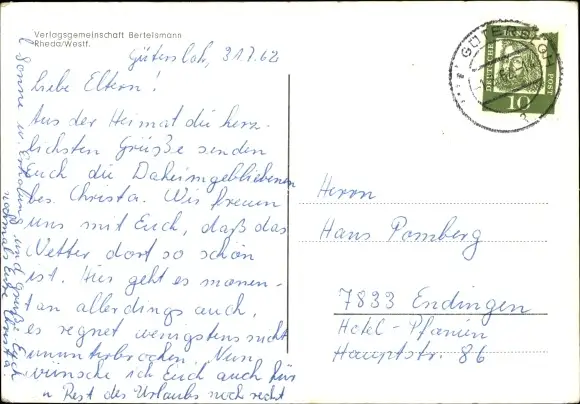 Verlagsgemeinschaft Bertelsmann
Rheda/Westf.
Gütersloh, 31.7.62
Liebe Eltern!
Aus der Heimat die herz-
lichsten Grüße senden
Euch die Daheimgebliebenen
bes. Christa. Wir freuen
uns mit Euch, daß das
Wetter dort so schön
ist. Hier geht es momen-
tan allerdings auch,
es regnet wenigstens nicht
ununterbrochen. Nun
wünsche ich Euch auch für
n Rest des Urlaubs noch recht
Sonne u. Erholung und grüße Euch
nochmals Eure Christa.
DEUTSCHE BUNDESPOST
10
GÜTERSLOH
Herrn
Hans Pomberg
7833 Endingen
Hotel-Pfauen
Hauptstr. 86